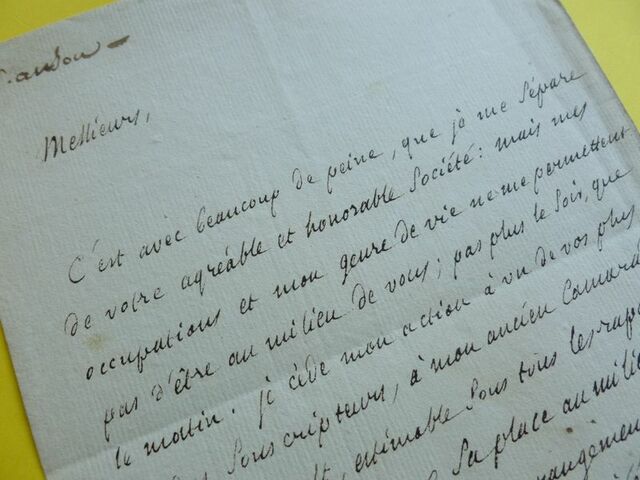 Messieurs,
C'est avec beaucoup de peine, que je me sépare
de votre agréable et honorable Société: mais mes
occupations et mon genre de vie ne me permettent
pas d'être au milieu de vous; pas plus le soir, que
le matin. je cède mon action à un de vos plus
Souscripteurs, à mon ancien Camara
estimable sous tous les rap
Sa place au milie
rangemen